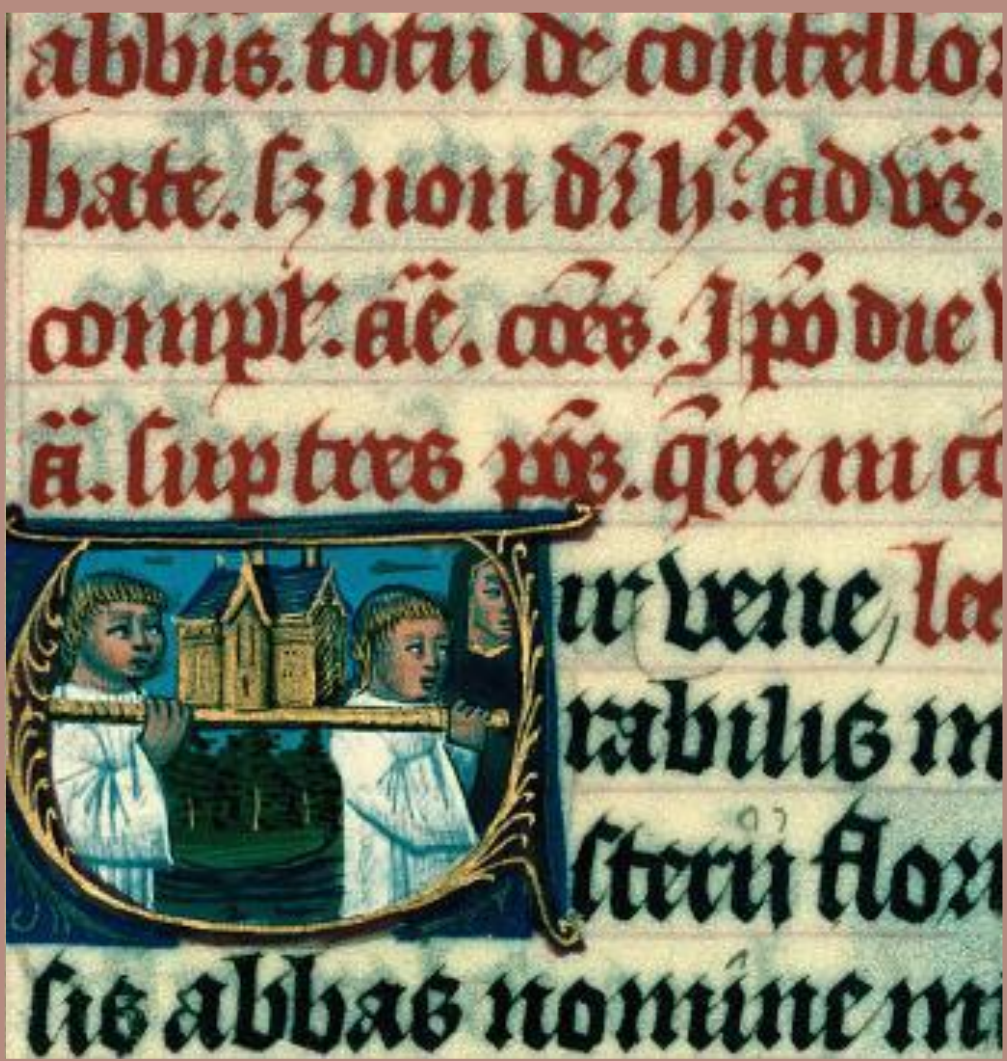 abbis. totũ de confesso
bate. sꝫ non dʳ h̉. ad vs̃.
complꝭ. ãe. cões. I põ die
ã. sup tres põs. q̃re in cõ
Vir vene, lec
rabilis m
sterij flori
sis abbas nomine m